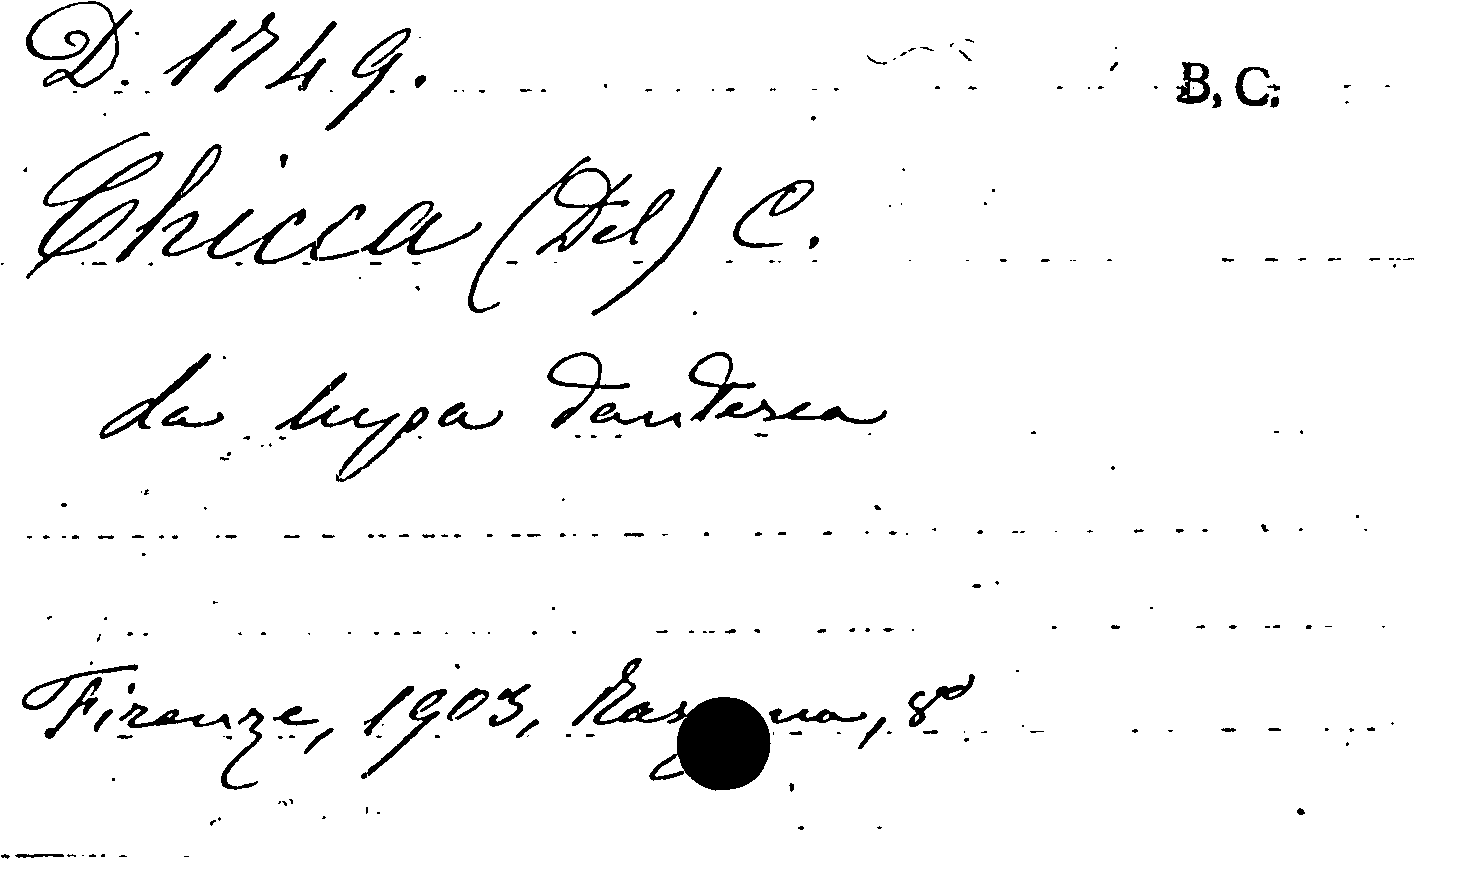 D. 1749. B. C.
Chicca (Del) C.
La lupa dantesca
Firenze, 1903, 8º